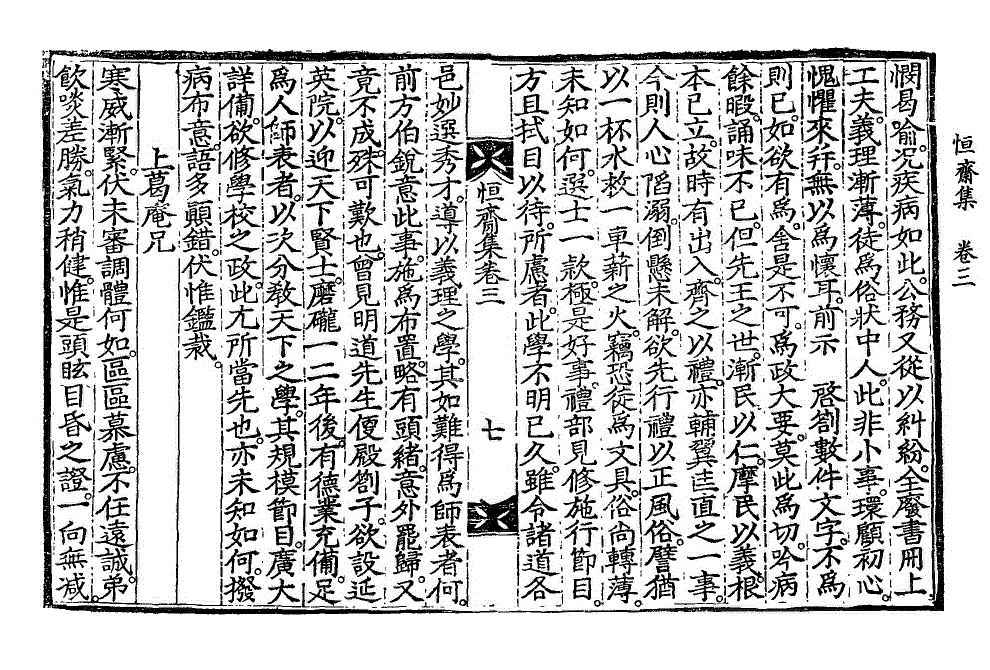 恒齋集　卷三
憫曷喩。况疾病如此。公務又從以糾紛。全廢書冊上
工夫。義理漸薄。徒爲俗狀中人。此非小事。環顧初心。
愧懼來幷。無以爲懷耳。前示　啓劄數件文字。不爲
則已。如欲有爲。舍是不可。爲政大要。莫此爲切。吟病
餘暇。誦味不已。但先王之世。漸民以仁。摩民以義。根
本已立。故時有出入。齊之以禮。亦輔翼匡直之一事
今則人心陷溺。倒懸未解。欲先行禮以正風俗。譬猶
以一杯水救一車薪之火。竊恐徒爲文具。俗尙轉薄。
未知如何。選士一款。極是好事。禮部見修施行節目。
方且拭目以待。所慮者。此學不明已久。雖令諸道各
恒齋集卷三
七
邑妙選秀才。導以義理之學。其如難得爲師表者何。
前方伯銳意此事。施爲布置。略有頭緖。意外罷歸。又
竟不成。殊可歎也。曾見明道先生便殿劄子。欲設延
英院。以迎天下賢士。磨礲一二年後。有德業充備。足
爲人師表者。以次分敎天下之學。其規模節目。廣大
詳備。欲修學校之政。此尤所當先也。亦未知如何。撥
病布意。語多顚錯。伏惟鑑裁。
上葛庵兄
寒威漸緊。伏未審調體何如。區區慕慮。不任遠誠。弟
飮啖差勝。氣力稍健。惟是頭眩目昏之證。一向無减。